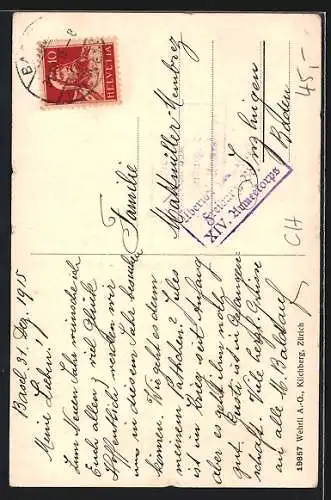 Basel 31. Dez. 1915
Meine Lieben.
Zum Neuen Jahr wünsche ich
Euch allen viel Glück
Hoffentlich werden wir
uns in diesem Jahr besuchen
können. Wie geht es dem
meinem Patkind? Jules
ist im Krieg seit Anfang
aber es geht ihm noch
gut. ist in Gefangen-
schaft. Viele herzl. Grüsse
an alle M. Baldauf
Familie
Mattmüller-Hemberg
Inzlingen
Baden
10
HELVETIA
XIV. Armeecorps
45,-
CH
19857 Wehrli A.-G., Kilchberg, Zürich